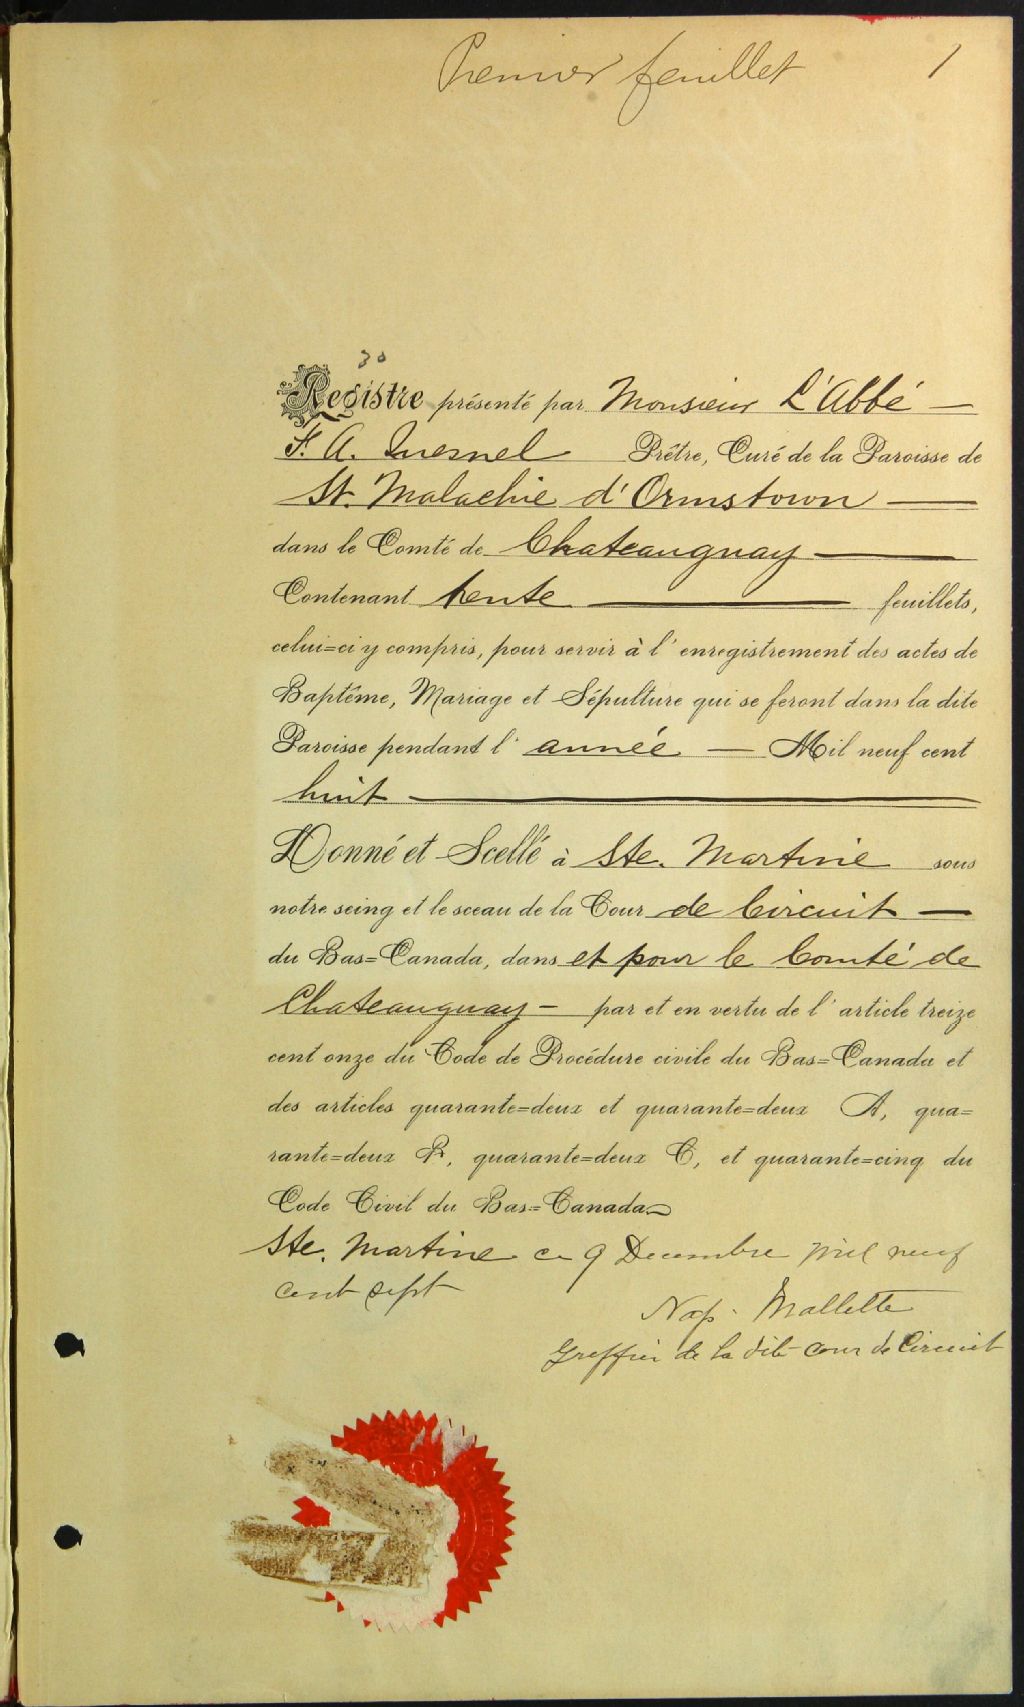 Premier feuillet 1
30
Registre présenté par Monsieur L'Abbé —
F. A. Quesnel Prêtre, Curé de la Paroisse de
St. Malachie d'Ormstown —
dans le Comté de Chateauguay —
Contenant trente — feuillets,
celui=ci y compris, pour servir à l'enregistrement des actes de
Baptême, Mariage et Sépulture qui se feront dans la dite
Paroisse pendant l'année — Mil neuf cent
huit —
Donné et Scellé à Ste. Martine sous
notre seing et le sceau de la Cour de Circuit —
du Bas=Canada, dans et pour le Comté de
Chateauguay — par et en vertu de l'article treize
cent onze du Code de Procédure civile du Bas=Canada et
des articles quarante=deux et quarante=deux A, qua=
rante=deux B, quarante=deux C, et quarante=cinq du
Code Civil du Bas=Canada.
Ste. Martine ce 9 Decembre mil neuf
cent sept
Nap. Mallette
Greffier de la dite Cour de Circuit